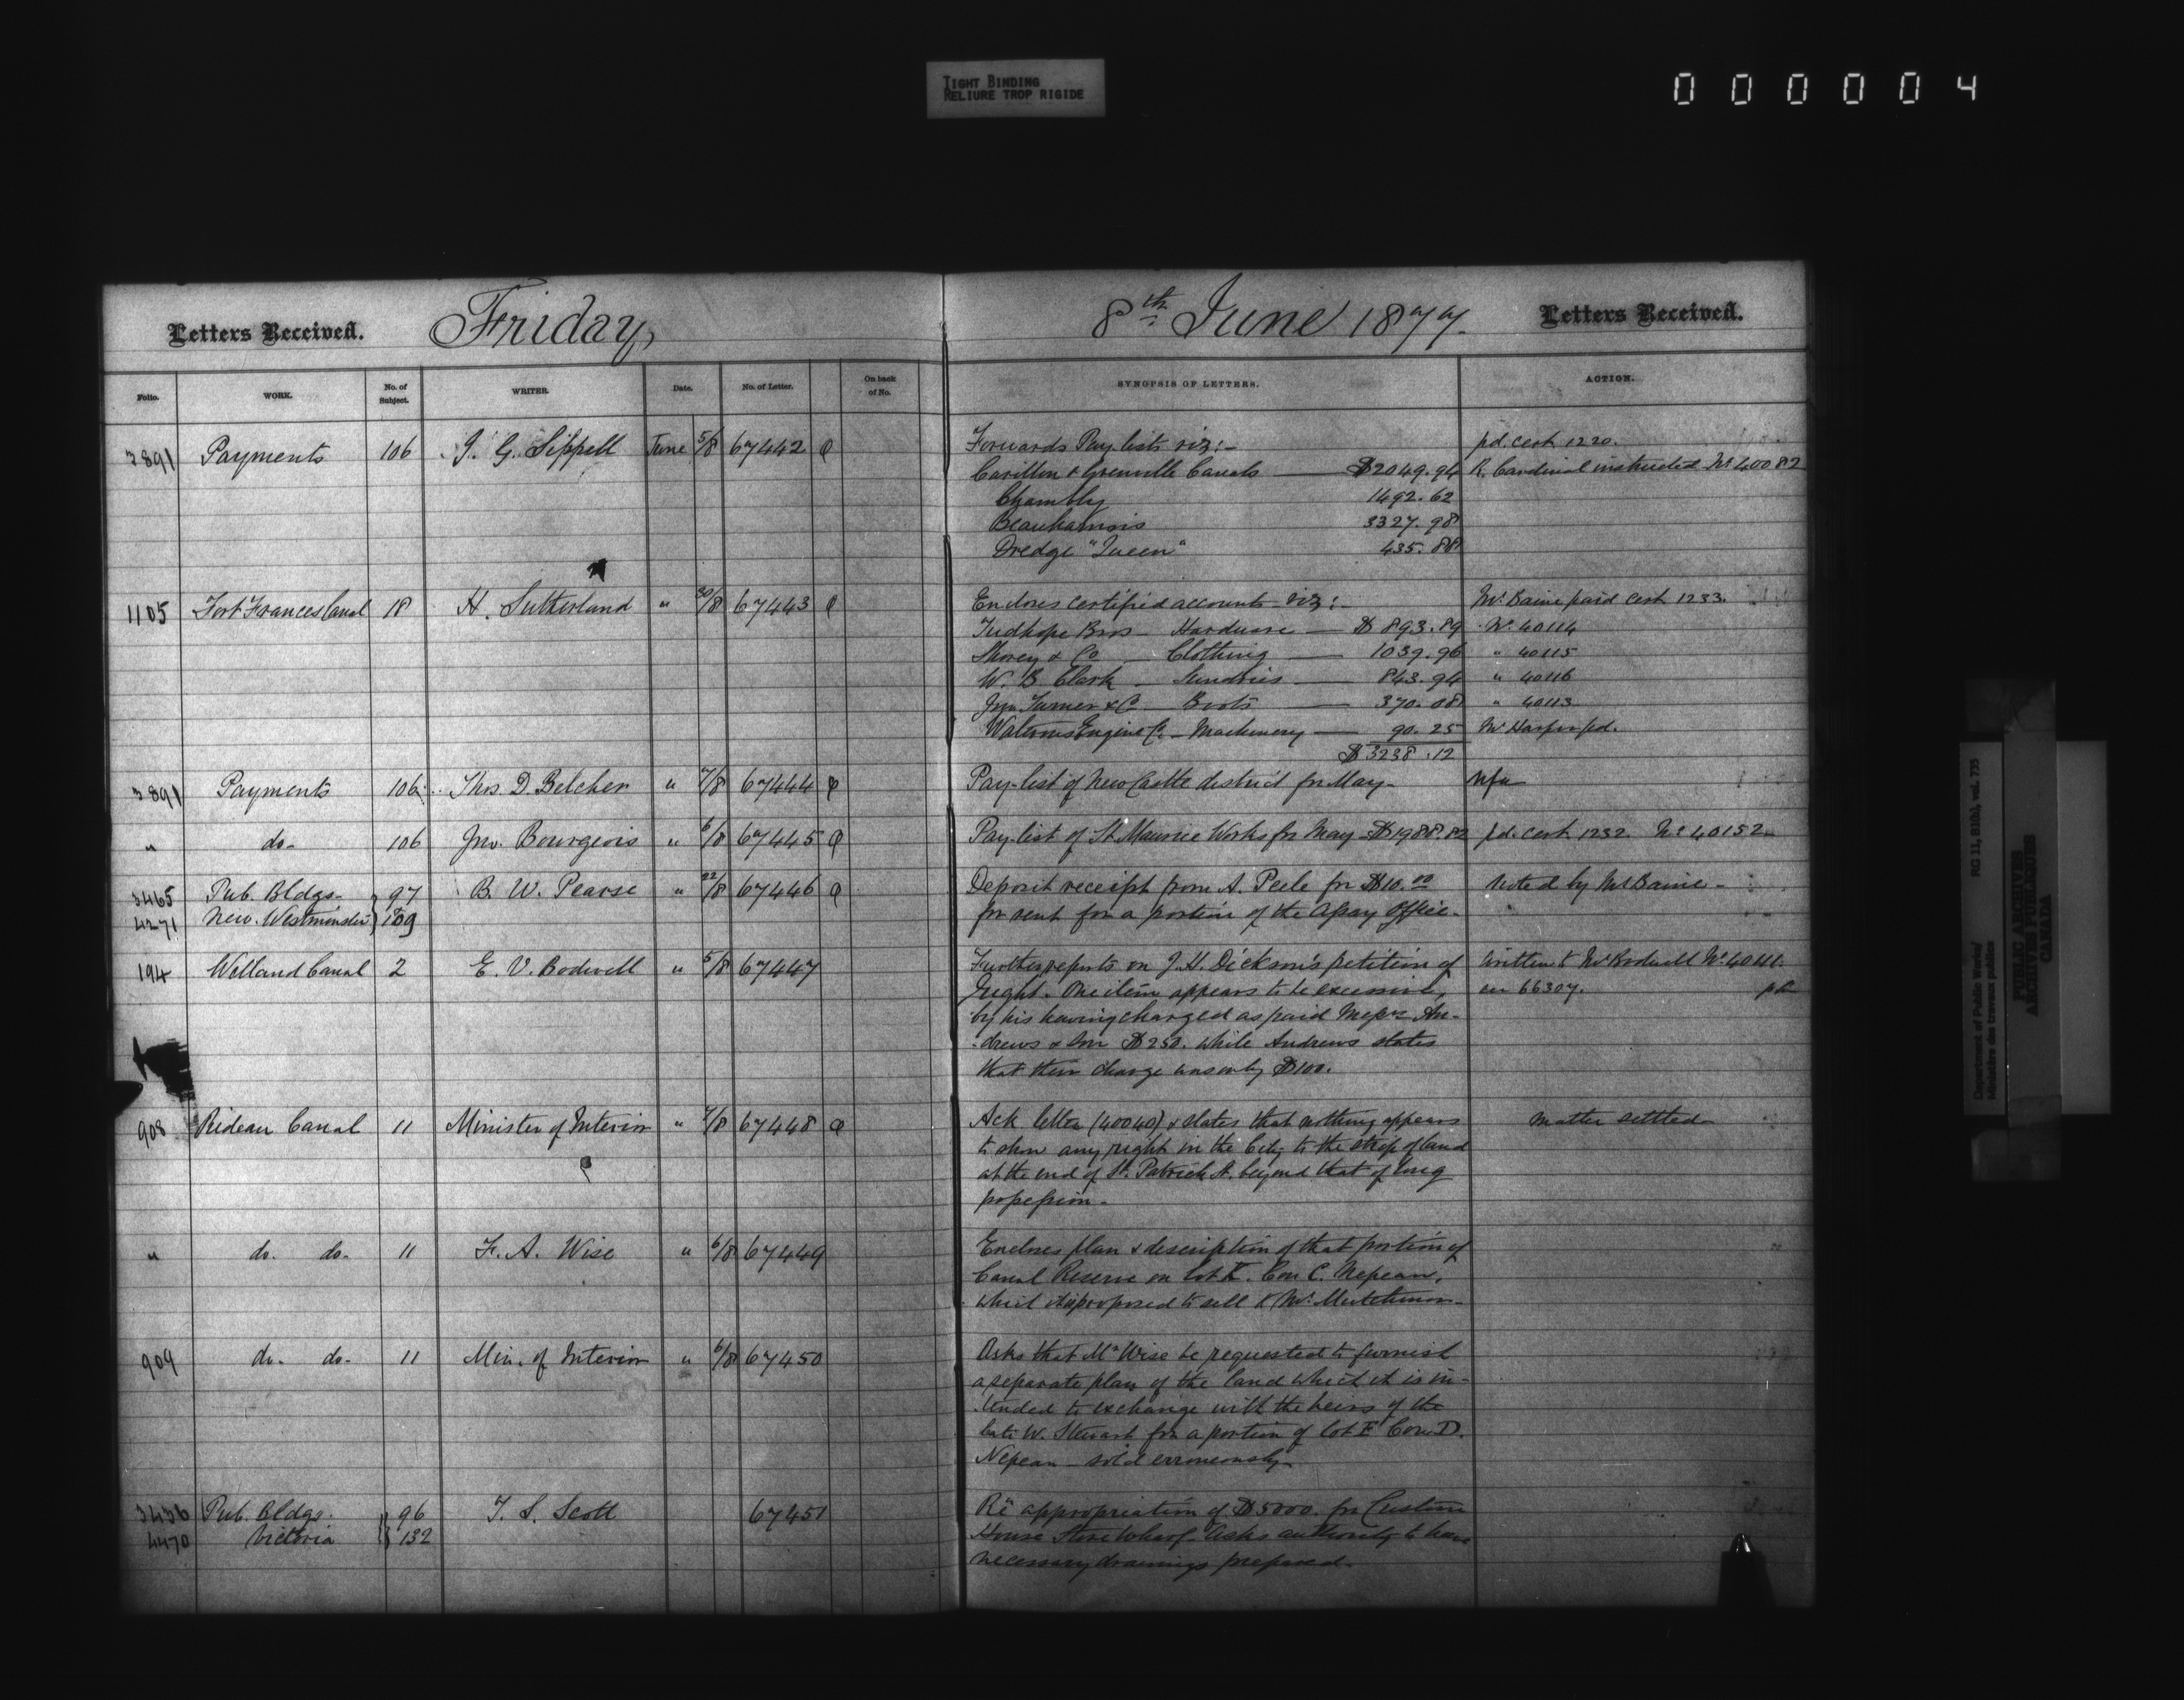 TIGHT BINDING
RELIURE TROP RIGIDE
000004
Letters Received. Friday, 8th June 1877. Letters Received.
Folio. WORK. No. of Subject. WRITER. Date. No. of Letter. On back of No. SYNOPSIS OF LETTERS. ACTION.
3891 Payments 106 J. G. Sippell June 5/8 67442 Forwards Pay lists viz:- pd. cert 1220.
Carillon & Grenville Canals $2049.94 R. Cardinal instructed No 40082
Chambly 1492.62
Beauharnois 3327.98
Dredge "Queen" 435.88
1105 Fort Frances Canal 18 H. Sutherland " 30/8 67443 Encloses certified accounts viz:- Mr. Baine paid cert 1233.
Tudhope Bros - Hardware - $893.89 No. 40114
Shorey & Co - Clothing - 1039.96 " 40115
W. B. Clark - Sundries - 843.94 " 40116
Jno. Turner & Co - Boots - 370.08 " 40113
Waterous Engine Co - Machinery - 90.25 Mr Harper pd.
$3238.12
3891 Payments 106 Thos. D. Belcher " 7/8 67444 Pay-list of New Castle district for May- nfa
" do- 106 Jno. Bourgeois " 6/8 67445 Pay-list of St. Maurice Works for May $1988.82 pd. cert. 1232. No 40152
3465 Pub. Bldgs- 97 B. W. Pearse " 22/8 67446 Deposit receipt from A. Peele for $10.00 Noted by Mr Baine-
4271 New. Westminster 109 for rent for a portion of the Assay Office-
194 Welland Canal 2 E. V. Bodwell " 5/8 67447 Further reports on J. H. Dickson's petition of written to Mr Bodwell No. 40111.
right. One item appears to be excessive, on 66307.
by his having charged as paid Messrs An-
drews & Son $250. while Andrews states
that their charge was only $100.
908 Rideau Canal 11 Minister of Interior " 7/8 67448 Ack letter (40040) & states that nothing appears Matter settled
to show any right in the City to the strip of land
at the end of St. Patrick St. beyond that of long
possession-
" do. do- 11 F. A. Wise " 6/8 67449 Encloses plan & description of that portion of
Canal Reserve on lot K. Con C. Nepean,
which it is proposed to sell to Mr.
909 do- do- 11 Min. of Interior " 6/8 67450 Asks that Mr Wise be requested to furnish
a separate plan of the land which it is in-
tended to exchange with the heirs of the
late W. Stewart for a portion of lot E Con. D.
Nepean - sold erroneously-
3436 Pub. Bldgs. 96 T. S. Scott 67451 Rë appropriation of $5000. for Custom
4470 Victoria 132 House Store Wharf- Asks authority to have
necessary drawings prepared-
Department of Public Works/ Ministère des travaux publics
RG 11, B1(b), vol. 735
PUBLIC ARCHIVES
ARCHIVES PUBLIQUES
CANADA